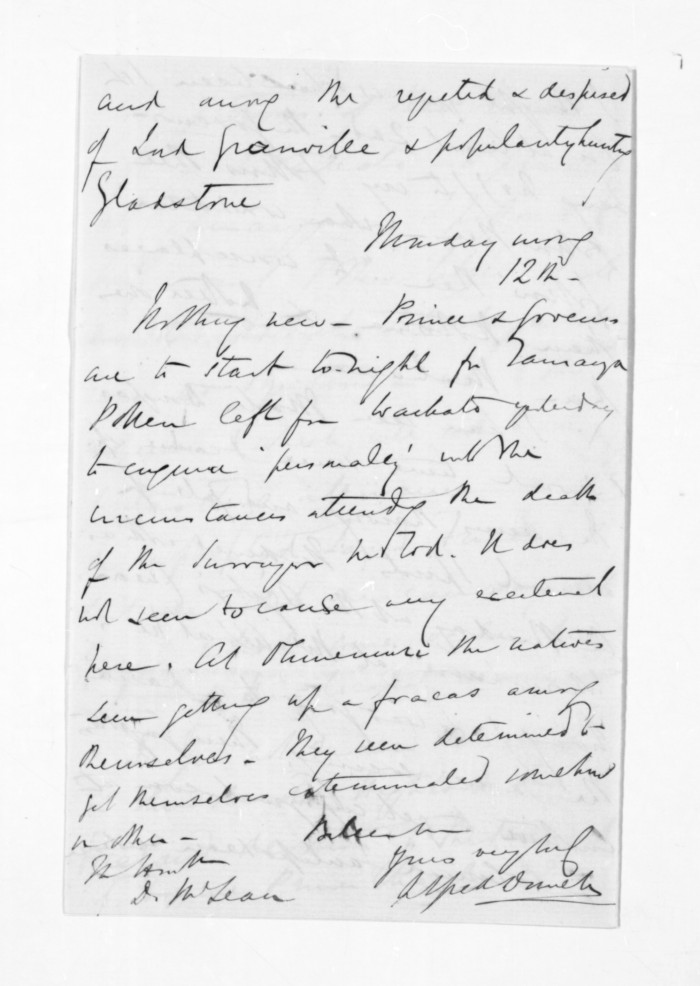 and among the rejected & despised
of Lord Granville & popularity hunting
Gladstone
Monday morng
12th -
Nothing new - Prince & Governor
are to start to-night for Tauranga
Pollen left for Waikato yesterday
to enquire 'personally' into the
circumstances attendg the death
of the Surveyor
It does
not seem to cause any excitement
here. At Ohinemuri the natives
seem getting up a fracas among
themselves - They seem determined to
get themselves exterminated somehow
or other -
Believe me
Yours very truly
Alfred Domett
D. McLean